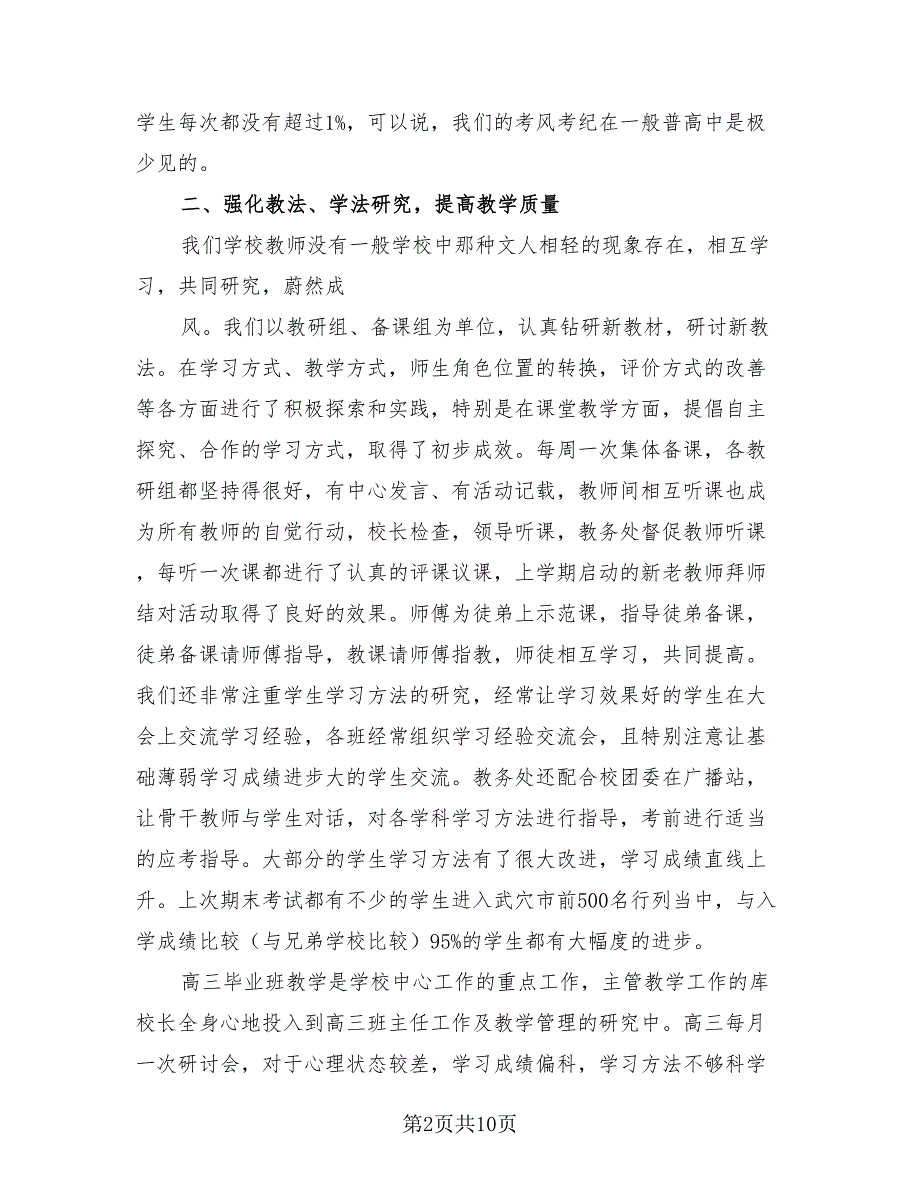 学生每次都没有超过1%，可以说，我们的考风考纪在一般普高中是极
少见的。
二、强化教法、学法研究，提高教学质量
我们学校教师没有一般学校中那种文人相轻的现象存在，相互学
习，共同研究，蔚然成
风。我们以教研组、备课组为单位，认真钻研新教材，研讨新教
法。在学习方式、教学方式，师生角色位置的转换，评价方式的改善
等各方面进行了积极探索和实践，特别是在课堂教学方面，提倡自主
探究、合作的学习方式，取得了初步成效。每周一次集体备课，各教
研组都坚持得很好，有中心发言、有活动记载，教师间相互听课也成
为所有教师的自觉行动，校长检查，领导听课，教务处督促教师听课
，每听一次课都进行了认真的评课议课，上学期启动的新老教师拜师
结对活动取得了良好的效果。师傅为徒弟上示范课，指导徒弟备课，
徒弟备课请师傅指导，教课请师傅指教，师徒相互学习，共同提高。
我们还非常注重学生学习方法的研究，经常让学习效果好的学生在大
会上交流学习经验，各班经常组织学习经验交流会，且特别注意让基
础薄弱学习成绩进步大的学生交流。教务处还配合校团委在广播站，
让骨干教师与学生对话，对各学科学习方法进行指导，考前进行适当
的应考指导。大部分的学生学习方法有了很大改进，学习成绩直线上
升。上次期末考试都有不少的学生进入武穴市前500名行列当中，与入
学成绩比较（与兄弟学校比较）95%的学生都有大幅度的进步。
高三毕业班教学是学校中心工作的重点工作，主管教学工作的库
校长全身心地投入到高三班主任工作及教学管理的研究中。高三每月
一次研讨会，对于心理状态较差，学习成绩偏科，学习方法不够科学
第2页共10页